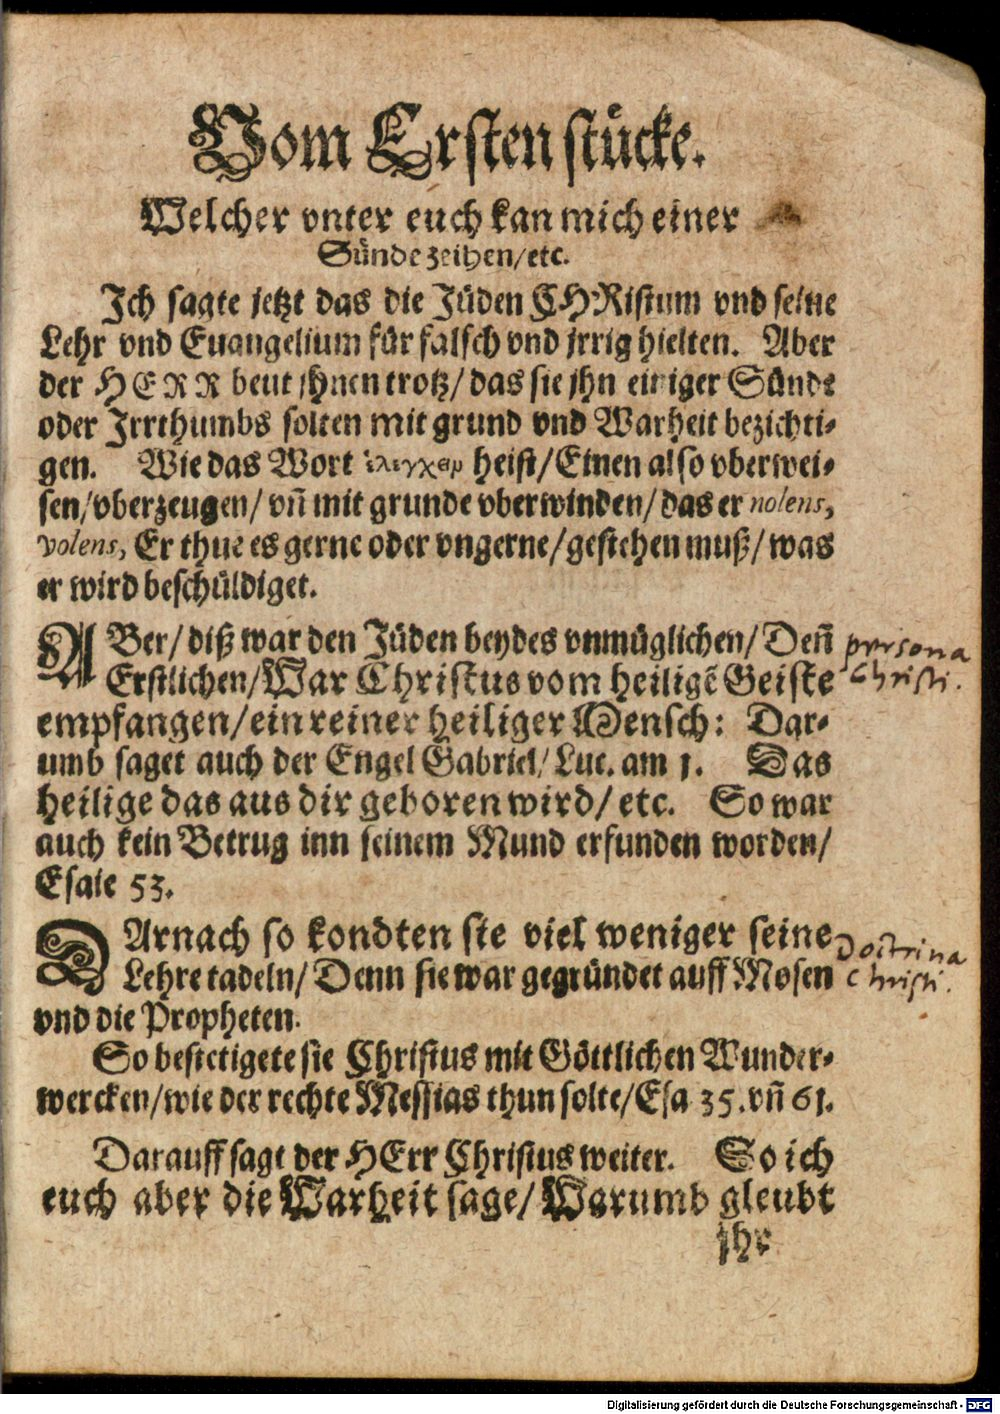 Vom Ersten stücke.
Welcher vnter euch kan mich einer
Sünde zeihen/etc.
Ich sagte jetzt das die Jüden CHRistum vnd seine
Lehr vnd Euangelium für falsch vnd jrrig hielten. Aber
der HERR beut jhnen trotz/ das sie jhn einiger Sünde
oder Irrthumbs solten mit grund vnd Warheit bezichti-
gen. Wie das Wort heist/ Einen also vberwei-
sen/ vberzeugen/ vñ mit grunde vberwinden/ das er nolens,
volens, Er thue es gerne oder vngerne/ gestehen muß/ was
er wird beschüldiget.
ABer/ diß war den Jüden beydes vnmüglichen/ Deñ
Erstlichen/ War Christus vom heiligẽ Geiste
empfangen/ ein reiner heiliger Mensch: Dar-
umb saget auch der Engel Gabriel/ Luc. am 1. Das
heilige das aus dir geboren wird/ etc. So war
auch kein Betrug inn seinem Mund erfunden worden/
Esaie 53.
persona
Christi.
DArnach so kondten sie viel weniger seine
Lehre tadeln/ Denn sie war gegründet auff Mosen
vnd die Propheten.
Doctrina
Christi.
So bestetigete sie Christus mit Göttlichen Wunder-
wercken/ wie der rechte Messias thun solte/ Esa 35. vñ 61.
Darauff sagt der HErr Christus weiter. So ich
euch aber die Warheit sage/ Warumb gleubt
jhr
Digitalisierung gefördert durch die Deutsche Forschungsgemeinschaft - DFG